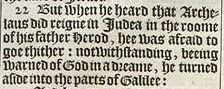 22 But when he heard that Arche-
laus did reigne in Judea in the roome
of his father Herod, hee was afraid to
goe thither: notwithstanding, beeing
warned of God in a dreame, he turned
aside into the parts of Galilee: